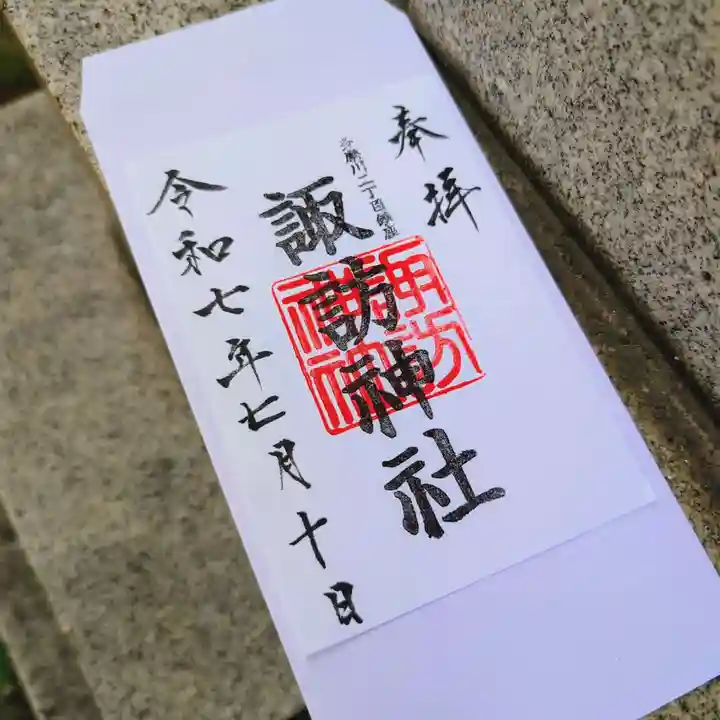 奉拝
多摩川二丁目鎮座
諏訪神社
諏訪神社
令和七年七月十日